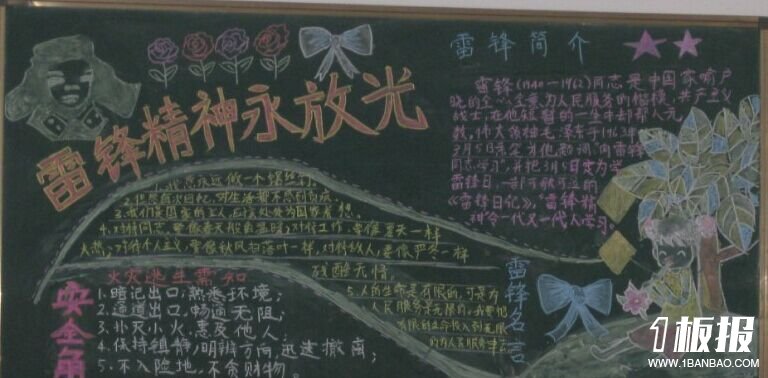 雷锋精神永放光
雷锋简介
雷锋(1940—1962)同志是中国家喻户
晓的全心全意为人民服务的楷模,共产主义
战士,在他短暂的一生中却帮人无
数,伟大领袖毛泽东于1963年
3月5日亲笔为他题词"向雷锋
同志学习",并把3月5日定为学
雷锋日,一部可歌可泣的
《雷锋日记》,"雷锋精
神"令一代又一代人学习。
1.我愿永远做一个螺丝钉。
3.我们是国家的主人,应该处处为国家着想。
4.对待同志,要像春天般的温暖,对待工作,要像夏天一样
火热,对待个人主义,要像秋风扫落叶一样,对待敌人,要像严冬一样
残酷无情。
雷锋名言
5.人的生命是有限的,可是为
人民服务是无限的,我要把
有限的生命投入到无限
的为人民服务中去
火灾逃生需知
安全角
1.暗记出口,熟悉环境;
2.通道出口,畅通无阻;
3.扑灭小火,惠及他人;
4.保持镇静,明辨方向,迅速撤离;
5.不入险地,不贪财物。
1板报
WWW.1BANBAO.COM